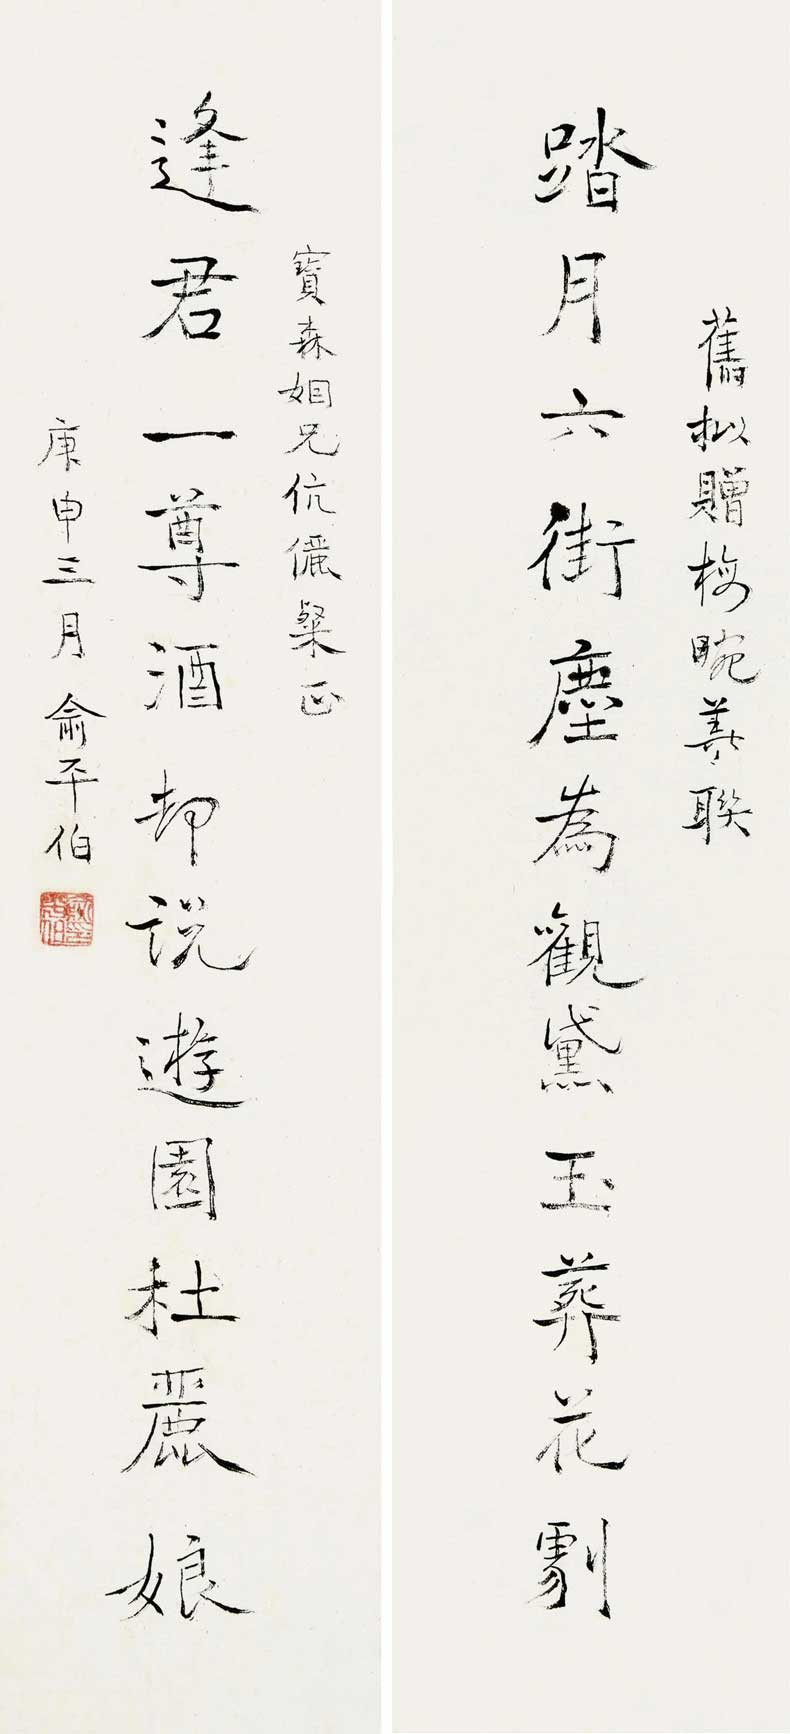 舊拟贈梅畹華联
踏月六街塵為觀黛玉葬花劇
寶森姻兄伉儷粲正
逢君一尊酒却説遊園杜麗娘
庚申三月俞平伯